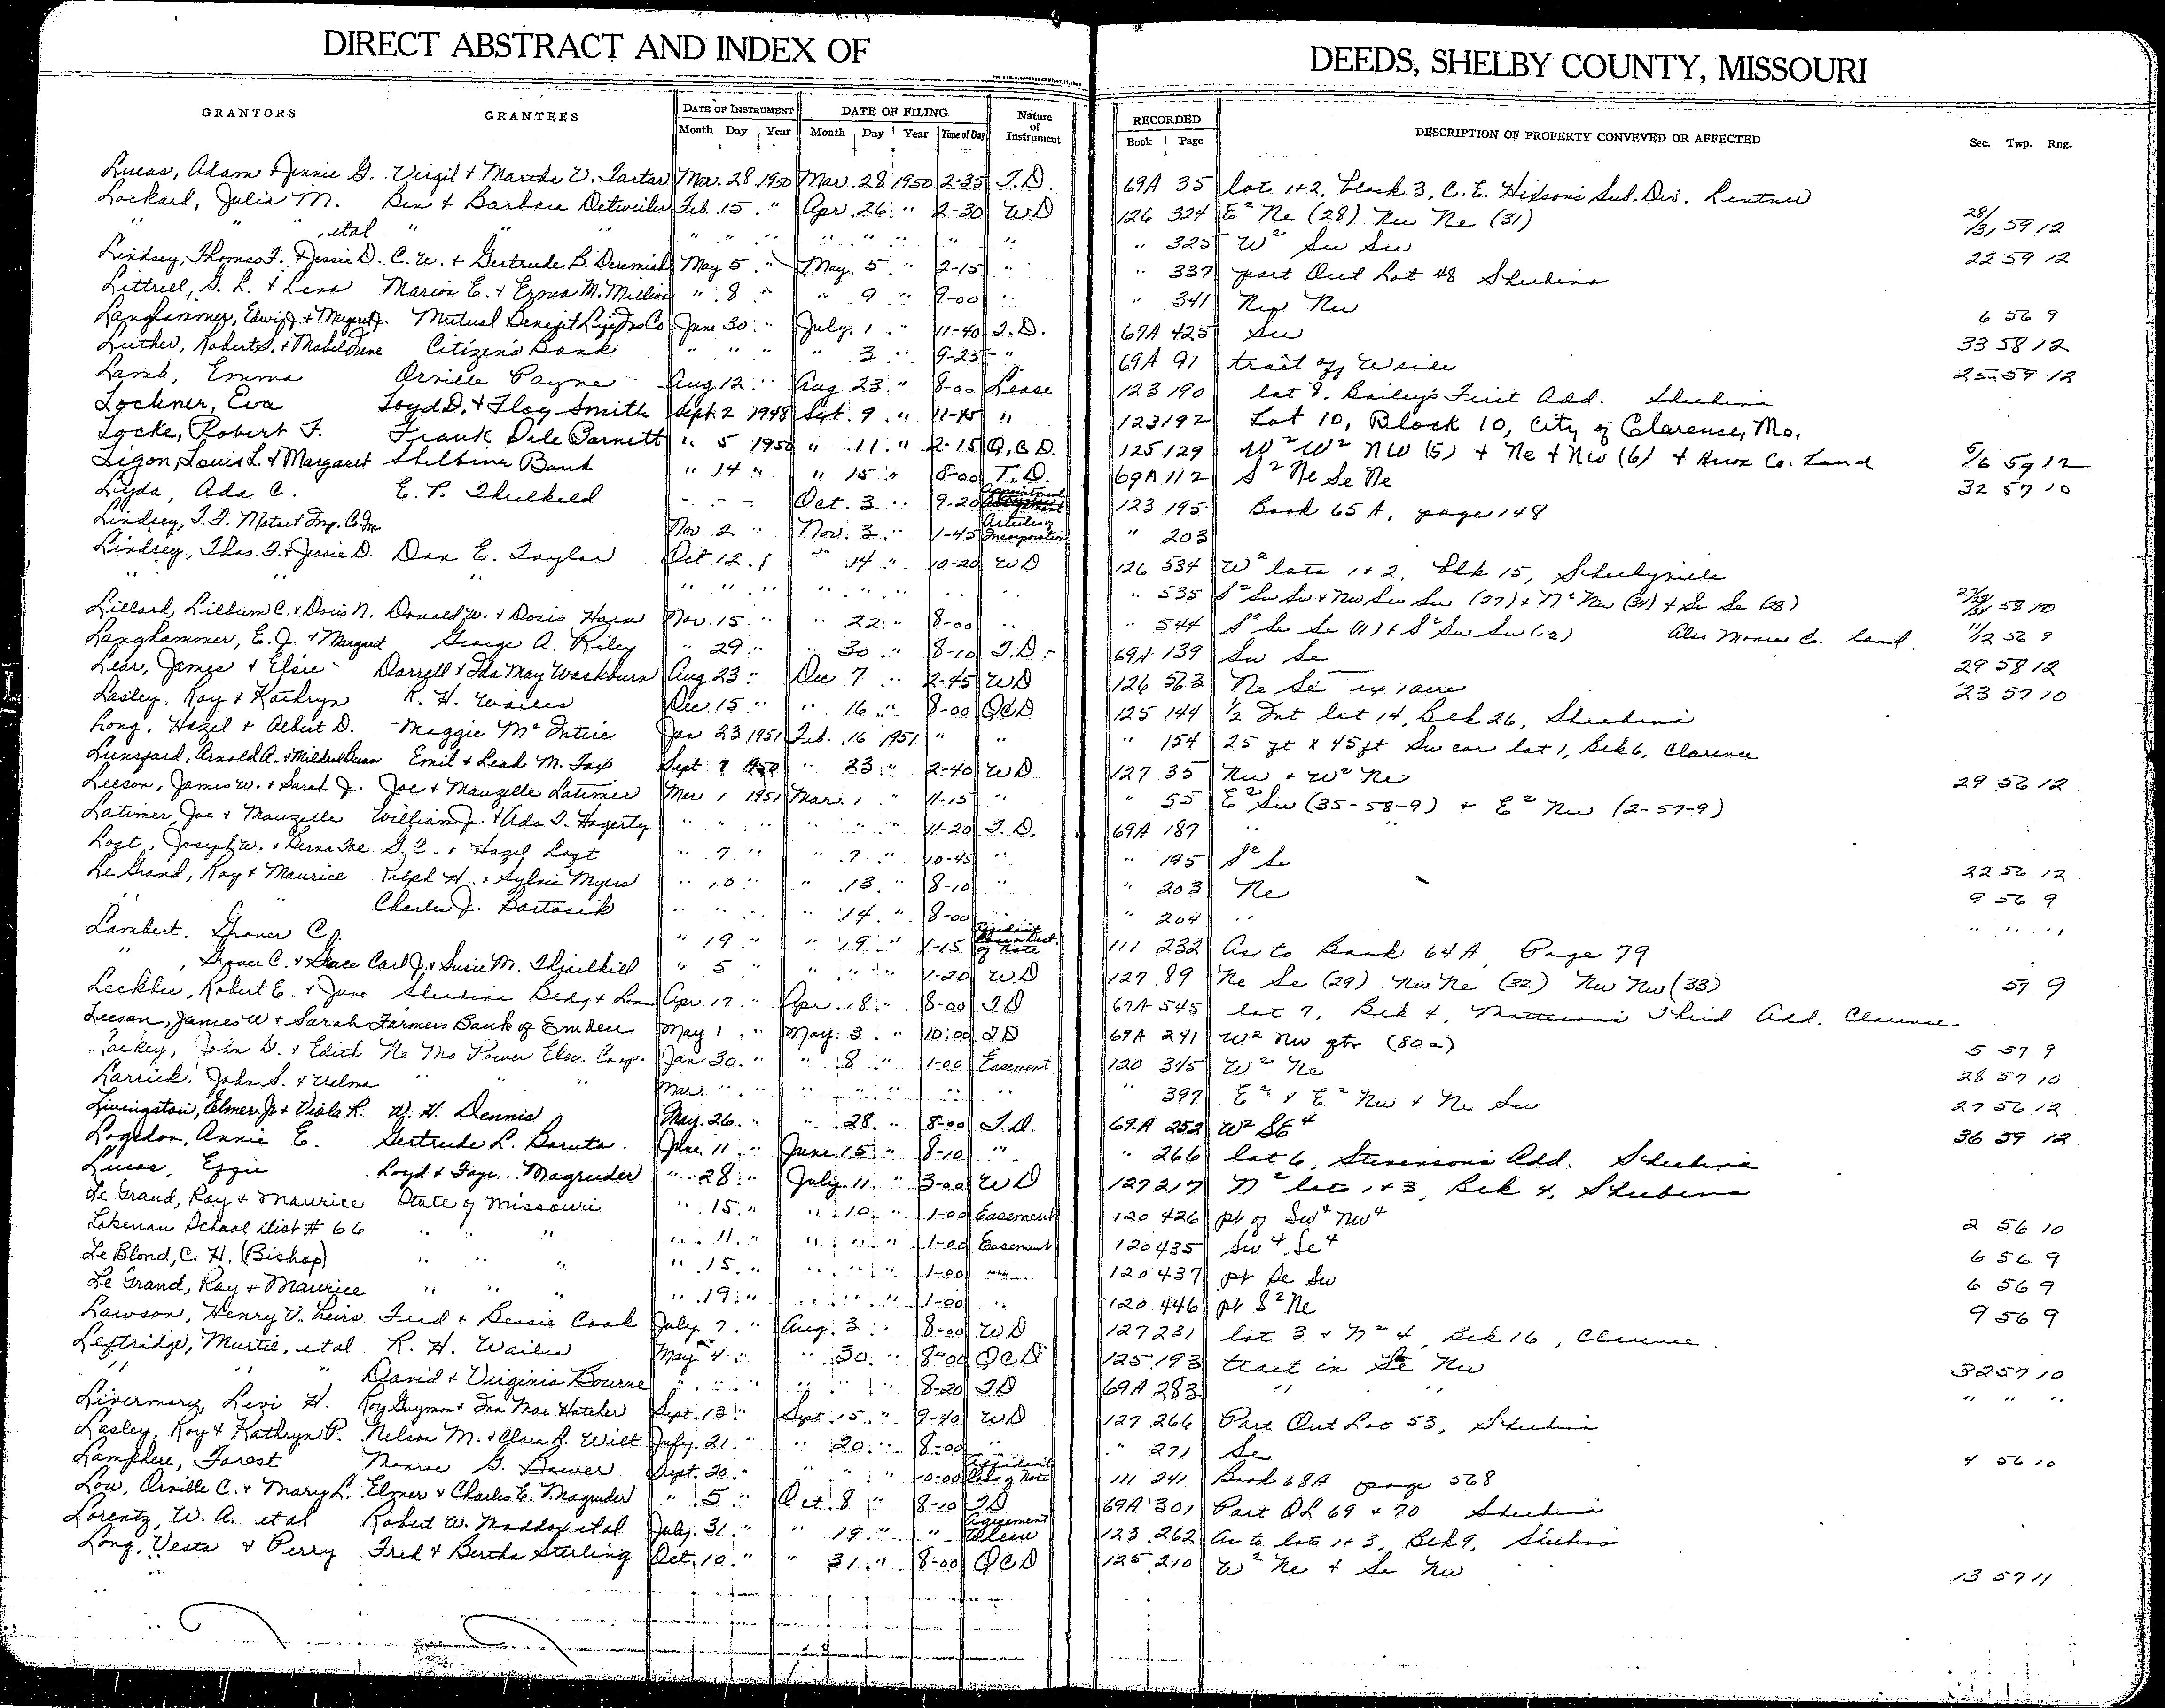 DIRECT ABSTRACT AND INDEX OF DEEDS, SHELBY COUNTY, MISSOURI
GRANTORS GRANTEES DATE OF INSTRUMENT Month Day Year DATE OF FILING Month Day Year Time of Day Nature of Instrument RECORDED Book Page DESCRIPTION OF PROPERTY CONVEYED OR AFFECTED Sec. Twp. Rng.
Lucas, Adam & Jennie G. Virgil & Martha V. Tarter Mar. 28 1950 Mar. 28 1950 2-35 T.D. 69A 35 lots 1+2, block 3, C. E. Hixson's Sub. Div. Lentner
Lockard, Julia M. Ben & Barbara Detweiler Feb. 15 " Apr. 26 " 2-30 WD 126 324 E² Ne (28) Nw Ne (31) 28/31 59 12
" " , etal " " " " " " " " " " " " " 325 W² Sw Sw 22 59 12
Lindsey, Thomas F. & Jessie D. C. W. & Gertrude B. May 5 " May. 5 " 2-15 " " 337 part Out Lot 48 Shelbina
Littrell, G. L. & Lena Marion E. & Ezma M. Million " 8 " " 9 " 9-00 " " 341 Nw Nw 6 56 9
Langhammer, Edwin J. & Margaret J. Mutual Benefit Life Ins Co June 30 " July. 1 " 11-40 T.D. 67A 425 Sw 33 58 12
Luther, Robert S. & Mabel June Citizens Bank " " " " 3 " 9-25 " 69A 91 tract off W side 25 59 12
Lamb, Emma Orville Payne Aug 12 " Aug 23 " 8-00 Lease 123 190 lot 8, Bailey's First Add. Shelbina
Lochner, Eva Loyd D. & Floy Smith Sept. 2 1948 Sept. 9 " 11-45 " 123 192 Lot 10, Block 10, City of Clarence, Mo.
Locke, Robert F. Frank Dale Barnett " 5 1950 " 11 " 2-15 Q.C.D. 125 129 W² W² NW (5) + Ne + Nw (6) + Knox Co. Land 5/6 59 12
Ligon, Louis L. & Margaret Shelbina Bank " 14 " " 15 " 8-00 T.D. 69A 112 S² Ne Se Ne 32 57 10
Lyda, Ada C. E. P. Thulkild - - - Oct. 3 " 9-20 Appointment 123 195 Book 65A, page 148
Lindsey, T. F. Motor & Imp. Co. Inc Nov 2 " Nov. 3 " 1-45 Articles of Incorporation " 203
Lindsey, Thos. F. & Jessie D. Dan E. Taylor Oct. 12 " " 14 " 10-20 WD 126 534 W² lots 1+2, Blk 15, Shelbyville
" " " " " " " " " " " " 535 S² Sw Sw + Nw Sw Sw (27) + N² Nw (34) + Se Se (28) 27/28/34 58 10
Lillard, Lilburn C. & Doris N. Donald W. & Doris Horn Nov. 15 " " 22 " 8-00 " " 544 S² Se Se (11) + S² Sw Sw (12) Also Monroe Co. land. 11/12 56 9
Langhammer, E. J. & Margaret George A. Riley " 29 " " 30 " 8-10 T.D. 69A 139 Sw Se 29 58 12
Lear, James & Elsie Darrell & Ida May Washburn Aug 23 " Dec 7 " 2-45 WD 126 563 Ne Se ex 1 acre 23 57 10
Lasley, Roy & Kathryn R. H. Wailes Dec. 15 " " 16 " 8-00 QCD 125 144 ½ Int lot 14, Blk 26, Shelbina
Long, Hazel & Albert D. Maggie McIntire Jan 23 1951 Feb. 16 1951 " " " 154 25 ft x 45 ft Sw cor lot 1, Blk 6, Clarence
Lunsford, Arnold A. & Mildred Emil & Leah M. Fox Sept 7 1950 " 23 " 2-40 WD 127 35 Nw + W² Ne 29 56 12
Leeson, James W. & Sarah J. Joe & Mauzelle Latimer Mar 1 1951 Mar. 1 " 11-15 " " 55 E² Sw (35-58-9) + E² Nw (2-57-9)
Latimer, Joe & Mauzelle William J. & Ada T. Hagerty " " " " " " 11-20 T.D. 69A 187 " "
Loft, Joseph W. & Berna Dae G. C. & Hazel Loft " 7 " " 7 " 10-45 " " 195 S² Se 22 56 12
Le Grand, Ray & Maurice Ralph H. & Sylvia Myers " 10 " " 13 " 8-10 " " 203 Ne 9 56 9
" " Charles J. Bartosik " " " " 14 " 8-00 " " 204 " " " "
Lambert. Grover C. " 19 " " 19 " 1-15 Affidavit of Note 111 232 As to Book 64A, Page 79
" , Grover C. & Grace Carl J. & Susie M. Thrailkill " 5 " " " " 1-20 W.D 127 89 Ne Se (29) Nw Ne (32) Nw Nw (33) 57 9
Leckbee, Robert E. & June Shelbina Bldg & Loan Apr. 17 " Apr. 18 " 8-00 T.D 67A 545 lot 7, Blk 4, Third Add. Clarence
Leeson, James W & Sarah Farmers Bank of Emden May 1 " May. 3 " 10:00 TD 69A 241 W² NW qtr (80a) 5 57 9
Lackey, John D. & Edith No Mo Power Elec. Coop. Jan 30 " " 8 " 1-00 Easement 120 345 W² Ne 28 57 10
Larrick. John S. & Velma " " " Mar. " " " " " " " " 397 E² + E² Nw + Ne Sw 27 56 12
Livingston, Elmer Jr & Viola R. W. H. Dennis May. 26 " " 28 " 8-00 T.D. 69A 252 W² SE⁴ 36 59 12
Logsdon, Annie E. Gertrude L. Baruta June 11 " June 15 " 8-10 " " 266 lot 6, Stevenson's Add. Shelbina
Lucas, Effie Loyd & Faye Magruder " 28 " July 11 " 3-00 WD 127 217 N² lots 1+3, Blk 4, Shelbina
Le Grand, Ray & Maurice State of Missouri " 15 " " 10 " 1-00 Easement 120 426 pt of Sw⁴ Nw⁴ 2 56 10
Lakenan School dist # 66 " " " " 11 " " " " 1-00 Easement 120 435 Sw⁴ Se⁴ 6 56 9
Le Blond, C. H. (Bishop) " " " " 15 " " " " 1-00 " 120 437 pt Se Sw 6 56 9
Le Grand, Ray & Maurice " " " " 19 " " " " 1-00 " 120 446 pt S² Ne 9 56 9
Lawson, Henry V. heirs Fred & Bessie Cook July 7 " Aug. 3 " 8-00 WD 127 231 lot 3 + N² 4, Blk 16, Clarence
Leftridge, Murtie, etal R. H. Wailes May 4 " " 30 " 8-00 QCD 125 193 tract in Se Nw 32 57 10
" " " David & Virginia Bourne " " " " " " 8-20 TD 69A 283 " " " " "
Livermory, Levi H. Roy Guymon & Ina Mae Hatcher Sept. 13 " Sept. 15 " 9-40 WD 127 266 Part Out Lot 53, Shelbina
Lasley, Roy & Kathryn P. Nelson M. & Clara A. Wilt July. 21 " " 20 " 8-00 " " 271 Se 4 56 10
Lamphere, Forest Monroe G. Bower Sept. 20 " " " " 10-00 Affidavit Loss of Note 111 241 Book 68A page 568
Low, Orville C. & Mary L. Elmer & Charles E. Magruder " 5 " Oct. 8 " 8-10 TD 69A 301 Part OL 69 + 70 Shelbina
Lorentz, W. A. etal Robert W. Maddox etal July. 31 " " 19 " " Agreement to Lease 123 262 As to lots 1+3, Blk 9, Shelbina
Long, Vesta & Perry Fred & Bertha Sterling Oct. 10 " " 31 " 8-00 QCD 125 210 W² Ne + Se Nw 13 57 11